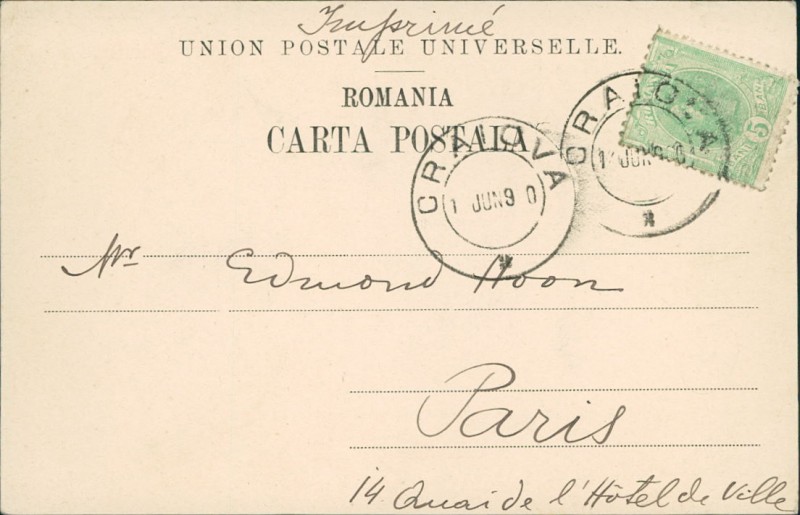 Imprimé
UNION POSTALE UNIVERSELLE.
ROMANIA
CARTA POSTALA
CRAIOVA
1 JUN 9 0
CRAIOVA
JUN 9
5 BANI
Mr Edmond Hoon
Paris
14 Quai de l'Hôtel de Ville